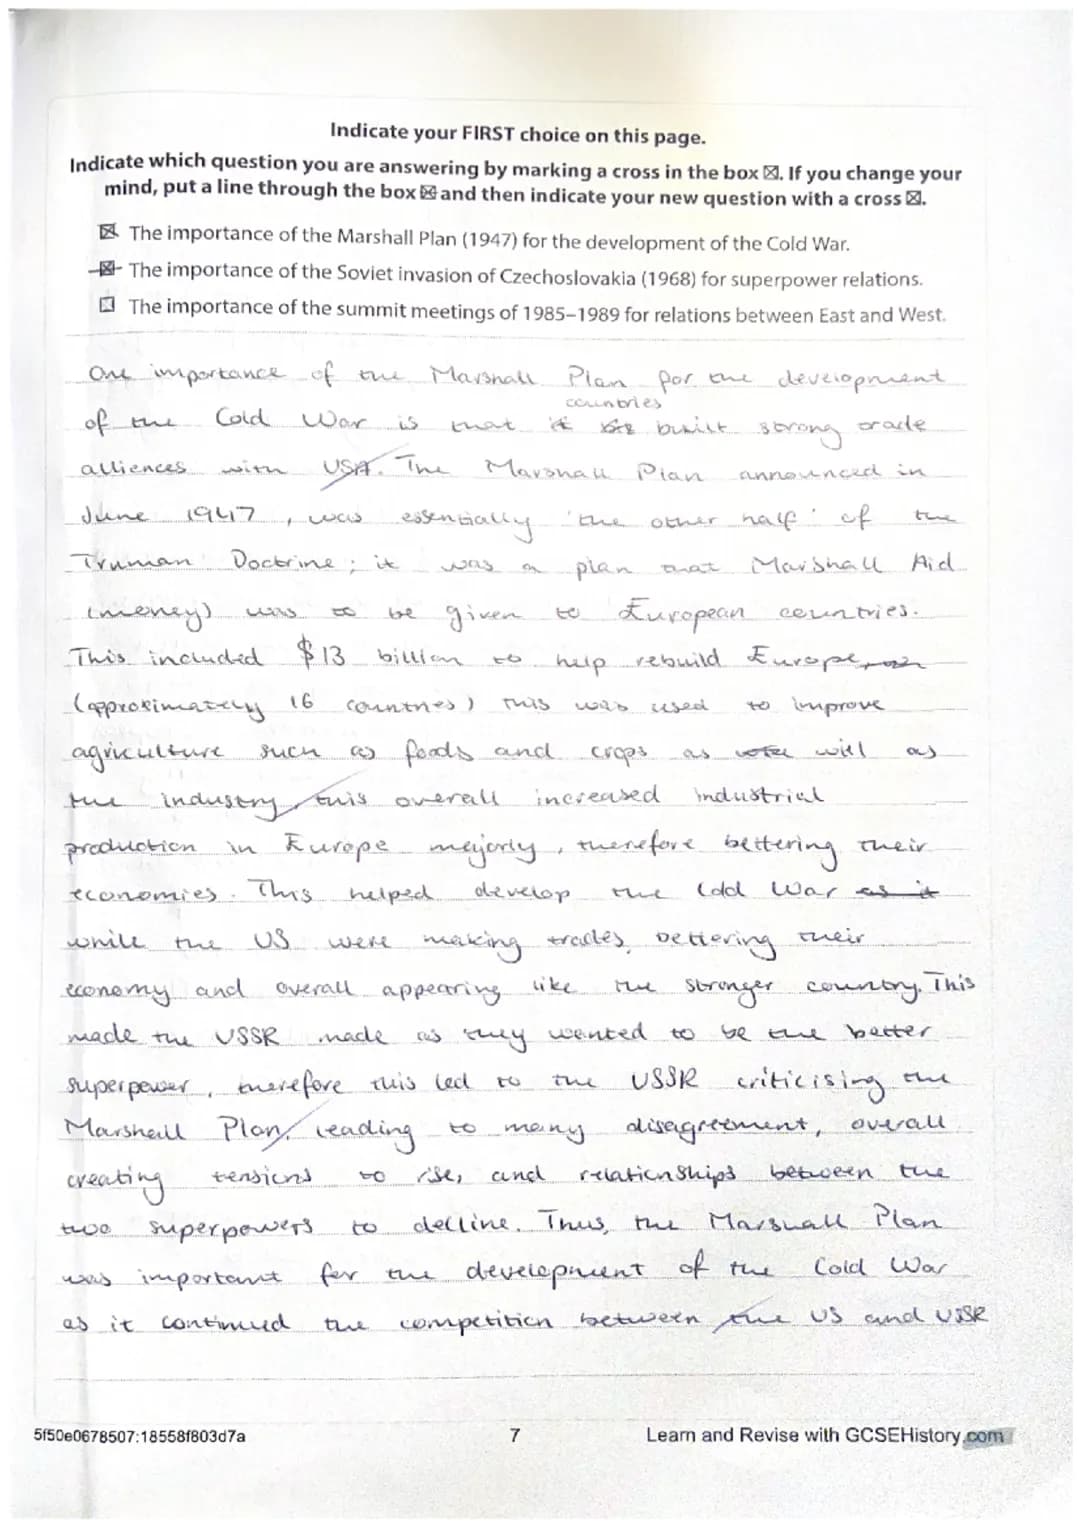 Indicate your FIRST choice on this page.
Indicate which question you are answering by marking a cross in the box ☒. If you change your
mind, put a line through the box ☒ and then indicate your new question with a cross ☒.
☒ The importance of the Marshall Plan (1947) for the development of the Cold War.
☒ The importance of the Soviet invasion of Czechoslovakia (1968) for superpower relations.
☐ The importance of the summit meetings of 1985–1989 for relations between East and West.
One importance of the Marshall Plan for the development
countries
of the Cold War is that it built strong trade
alliences with USA. The Marshall Plan announced in
June 1947, was essentially 'the other half' of the
Truman Doctrine; it was a plan that Marshall Aid
(money) was to be given to European countries.
This included $13 billion to help rebuild Europe,
(approximately 16 countries) this was used to improve
agriculture such as foods and crops as will as
the industry, this overall increased industrial
production in Europe majorly, therefore bettering their
economies. This helped develop the Cold War as it
while the US were making trades, bettering their
economy and overall appearing like the stronger country. This
made the USSR made as they wanted to be the better
superpower, therefore this led to the USSR criticising the
Marshall Plan, leading to many disagreement, overall
creating tensions to rise, and relationships between the
two superpowers to delline. Thus, the Marshall Plan
was important for the development of the Cold War
as it continued the competition between the US and USSR
5f50e0678507:18558f803d7a
7
Learn and Revise with GCSEHistory.com